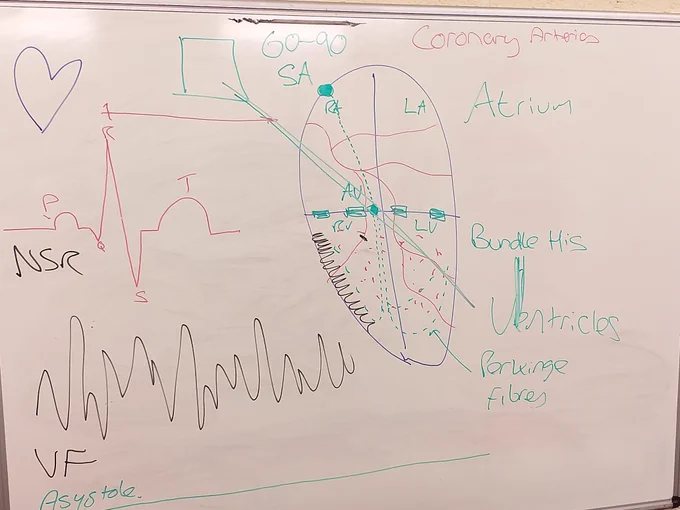 60-90
Coronary Arteries
SA
RA
LA
Atrium
R
P
T
AV
Q
RV
LV
Bundle His
NSR
S
Ventricles
Perkinge
Fibres
VF
Asystole.